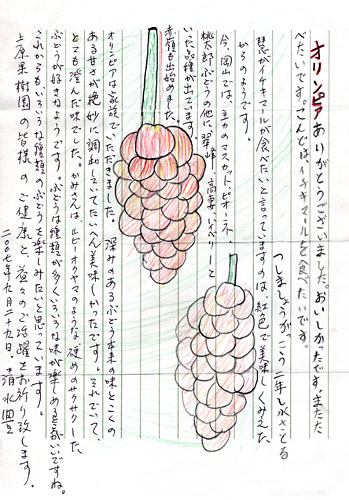 オリンピアありがとうございました。おいしかったです。またた
べたいです。こんどはイチキマールを食べたいです。
つしま小がっこう二年し水さとる
慧がイチキマールが食べたいと言っていますのは、紅色で美味しくみえた
からのようです。
今、岡山では、主予のマスカット、ピオーネ、
桃太郎ぶどうの他に、翠峰、高妻、ベリーと
いった品種が出ています。
赤嶺も出始めました。
オリンピアは家族でいただきました。深みのあるぶどう本来の味とこくの
ある甘さが絶妙に調和していてたいへん美味しかったです。それでいて、
とても澄んだ味でした。かみさんは、ルビーオクヤマのような硬めのサクサクした
ぶどうが好きなようです。ぶどうは種類が多くいろいろな味が楽しめる気がいいですね。
これからもいろいろな種類のぶどうを楽しみたいと思っています。
上原果樹園の皆様のご健康と、益々のご活躍をお祈り致します。
二〇〇七年九月二十九日。清水